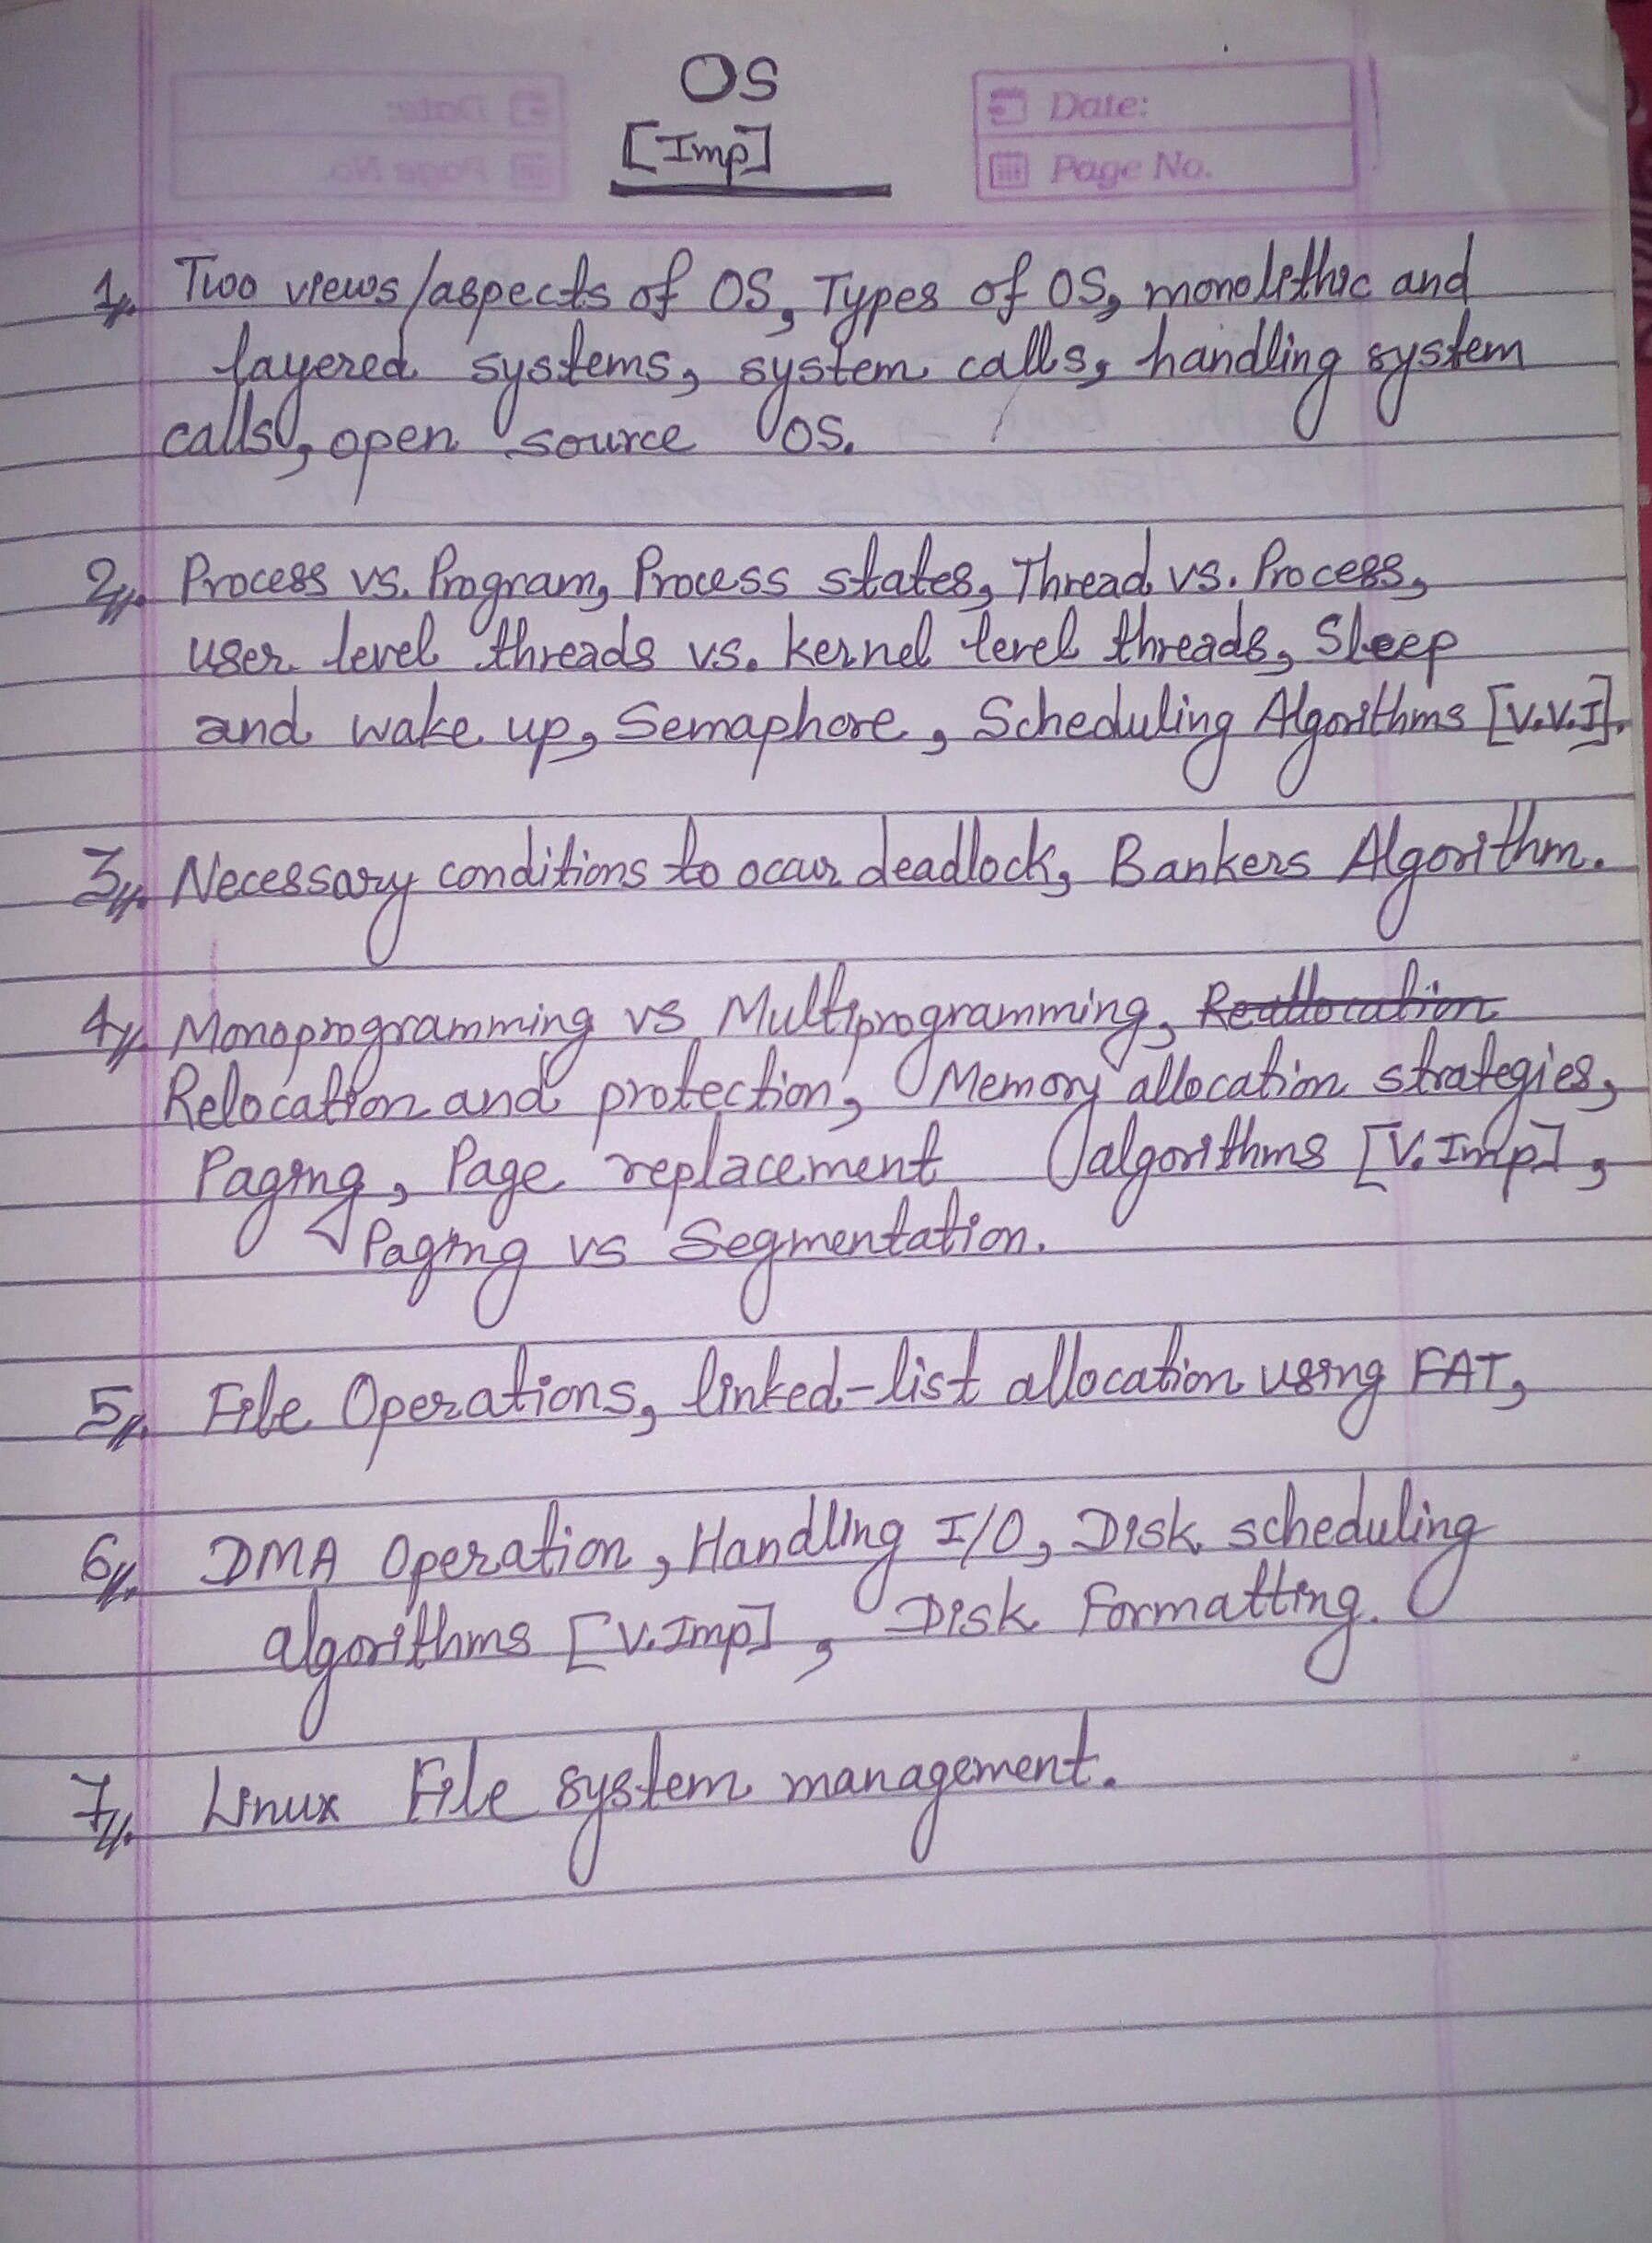 OS
[Imp]
Date:
Page No.
1. Two views/aspects of OS, Types of OS, monolithic and
layered systems, system calls, handling system
calls, open source OS.
2. Process vs. Program, Process states, Thread vs. Process,
user level threads vs. kernel level threads, Sleep
and wake up, Semaphore, Scheduling Algorithms [V.V.I].
3. Necessary conditions to occur deadlock, Bankers Algorithm.
4. Monoprogramming vs Multiprogramming, Reallocation
Relocation and protection, Memory allocation strategies,
Paging, Page replacement algorithms [V.Imp],
Paging vs Segmentation.
5. File Operations, linked-list allocation using FAT,
6. DMA Operation, Handling I/O, Disk scheduling
algorithms [V.Imp], Disk Formatting.
7. Linux File system management.